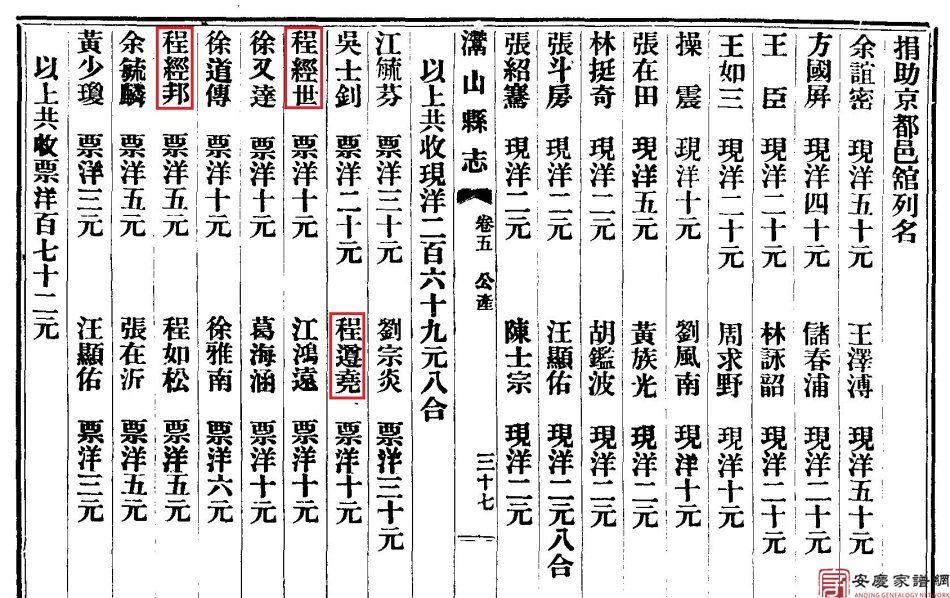 捐助京都邑舘列名
余誼密 現洋五十元 王澤溥 現洋五十元
方國屏 現洋四十元 儲春浦 現洋二十元
王臣 現洋二十元 林詠韶 現洋二十元
王如三 現洋二十元 周求野 現洋十元
操震 現洋十元 劉風南 現洋十元
張在田 現洋五元 黃族光 現洋二元
林挺奇 現洋二元 胡鑑波 現洋二元
張斗房 現洋二元 汪顯佑 現洋二元八合
張紹騫 現洋二元 陳士宗 現洋二元
灊山縣志 卷五 公產 三十七
以上共收現洋二百六十九元八合
江毓芬 票洋三十元 劉宗炎 票洋三十元
吳士釗 票洋二十元 程遵堯 票洋十元
程經世 票洋十元 江鴻遠 票洋十元
徐又達 票洋十元 葛海涵 票洋十元
徐道傳 票洋十元 徐雅南 票洋六元
程經邦 票洋五元 程如松 票洋五元
余毓麟 票洋五元 張在沂 票洋五元
黃少瓊 票洋三元 汪顯佑 票洋三元
以上共收票洋百七十二元
安慶家譜網
ANQING GENEALOGY NETWORK